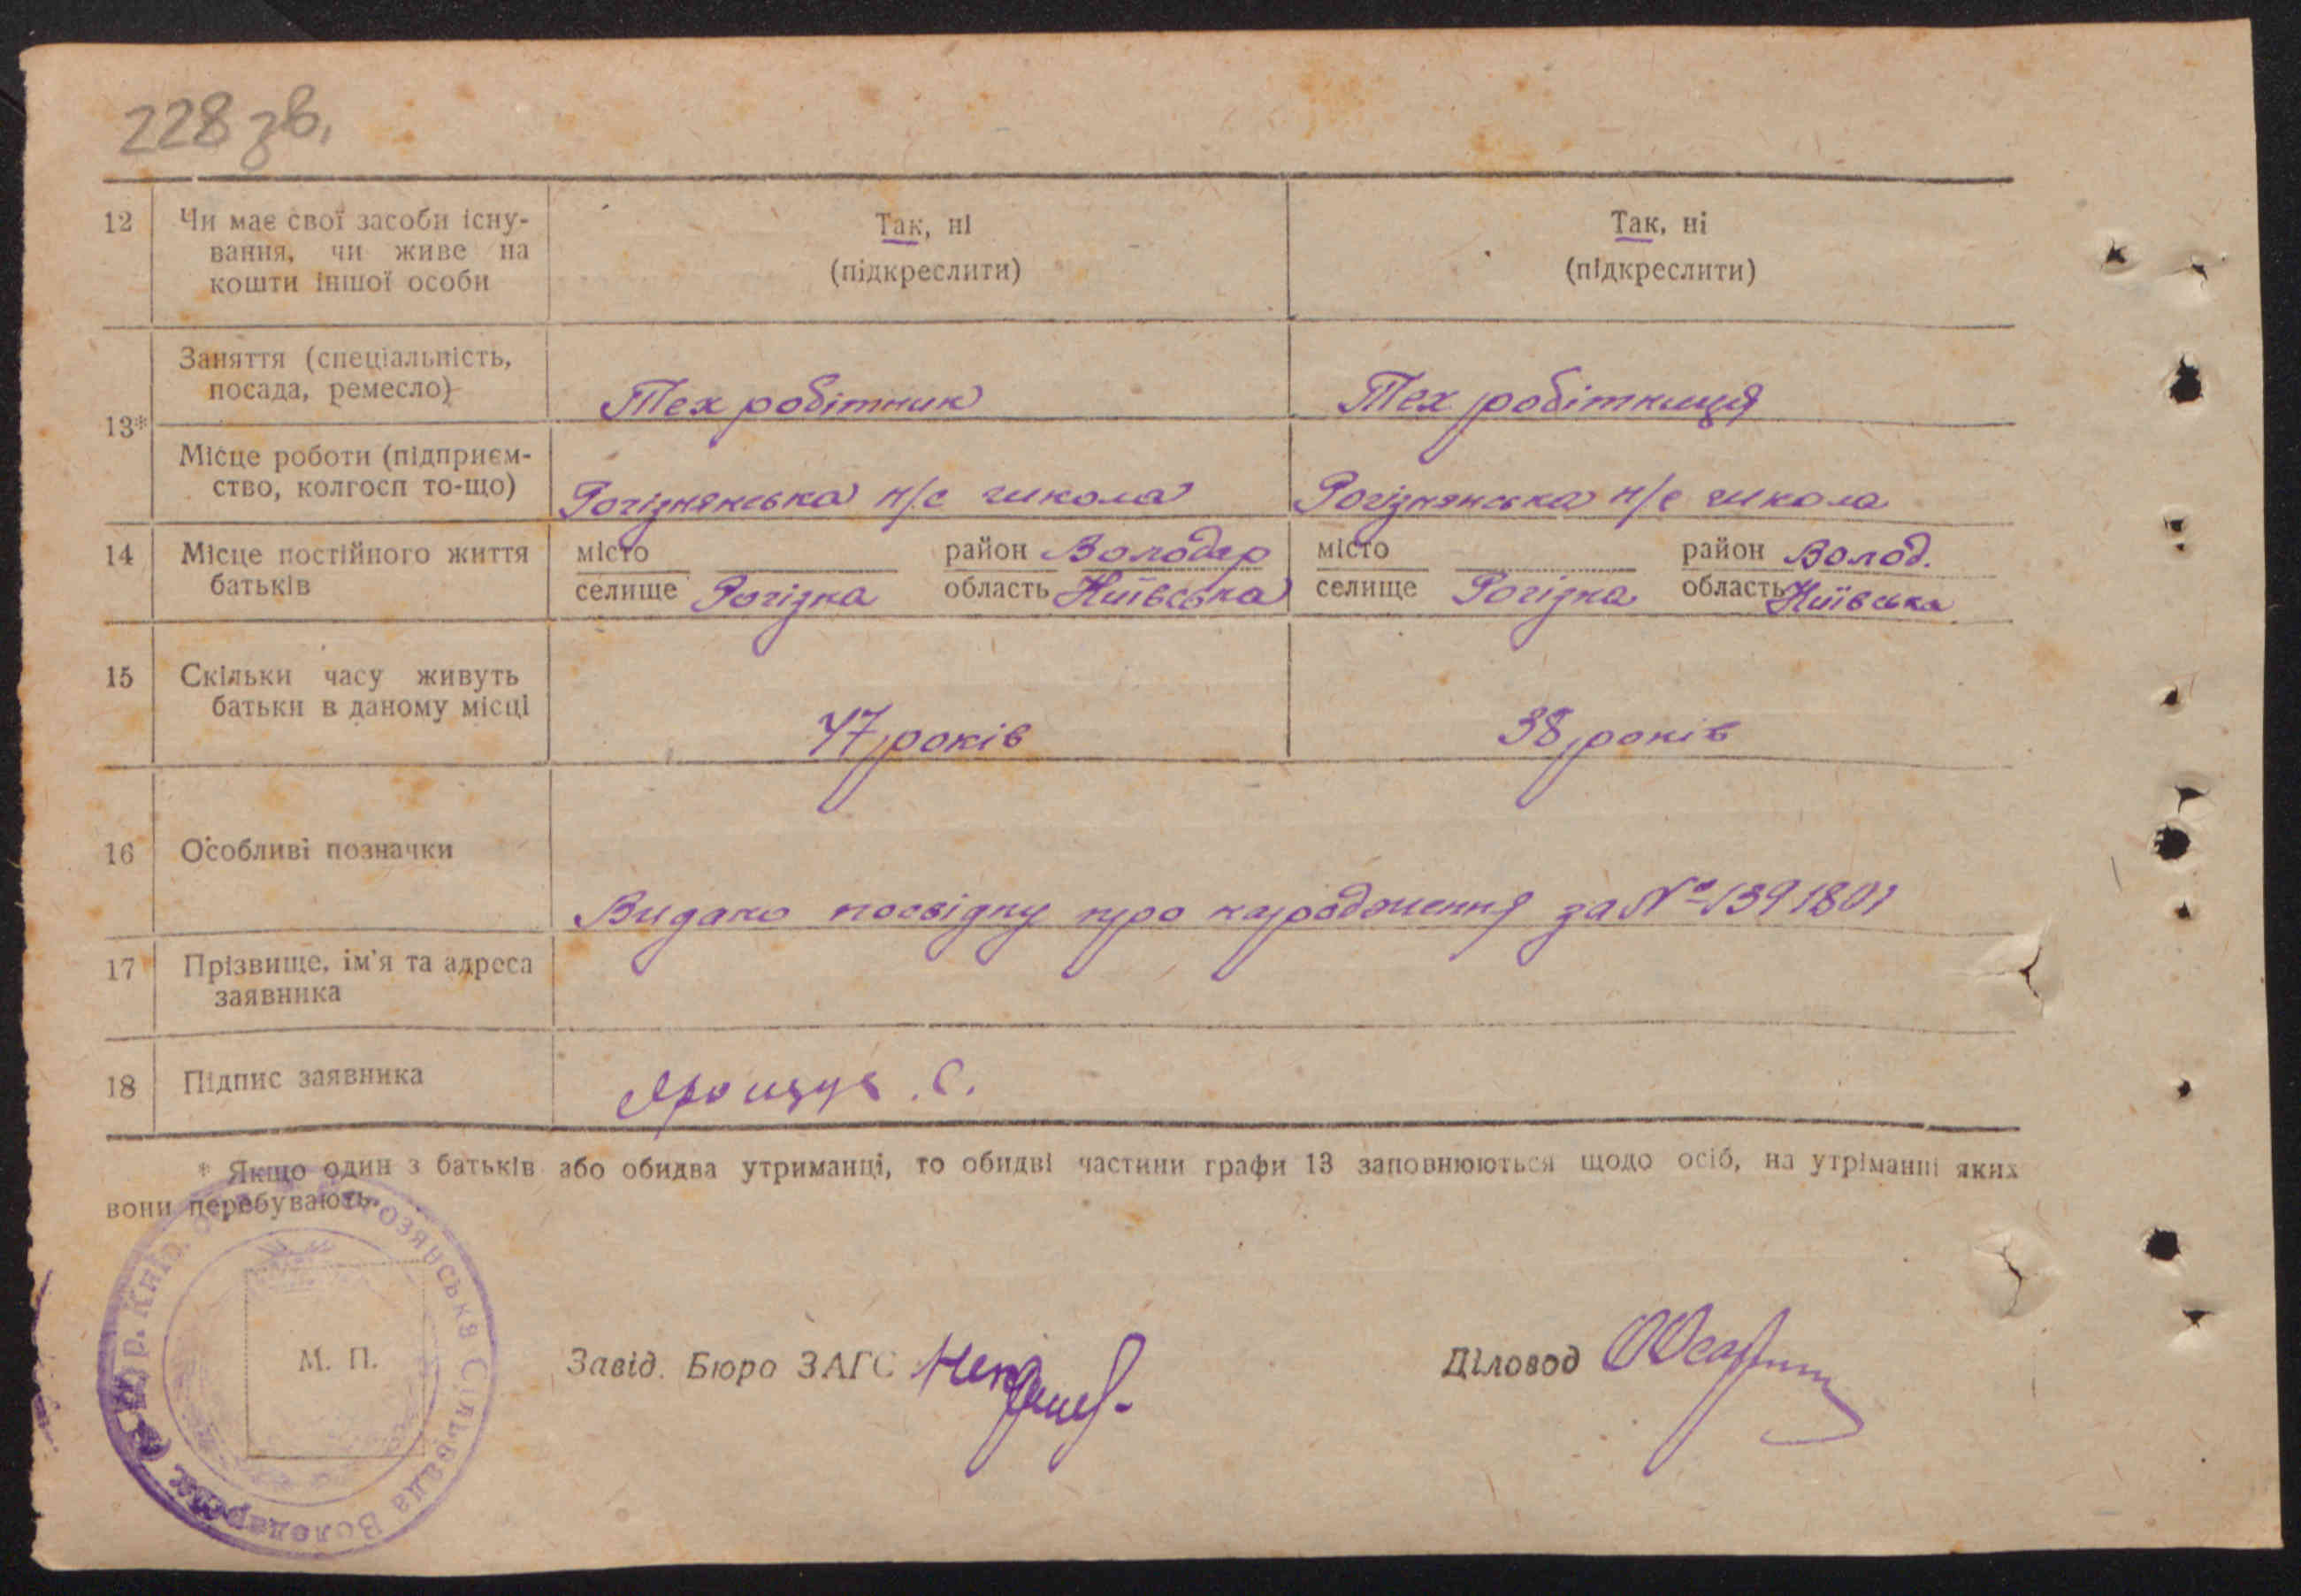 228 зв.
12 Чи має свої засоби існу-
вання, чи живе на
кошти іншої особи
Так, ні
(підкреслити)
Так, ні
(підкреслити)
13*
Заняття (спеціальність,
посада, ремесло)
Тех робітник
Тех робітниця
Місце роботи (підприєм-
ство, колгосп то-що)
Рогізнянська н/с школа
Рогізнянська н/с школа
14 Місце постійного життя
батьків
місто район Володар
селище Рогізна область Київська
місто район Волод.
селище Рогізна область Київська
15 Скільки часу живуть
батьки в даному місці
47 років
38 років
16 Особливі позначки
Видано посвідку про народження за № 1391801
17 Прізвище, ім'я та адреса
заявника
18 Підпис заявника
Ярощук С.
* Якщо один з батьків або обидва утриманці, то обидві частини графи 13 заповнюються щодо осіб, на утріманні яких
вони перебувають.
М. П.
Завід. Бюро ЗАГС
Діловод
Сільрада Володарськ